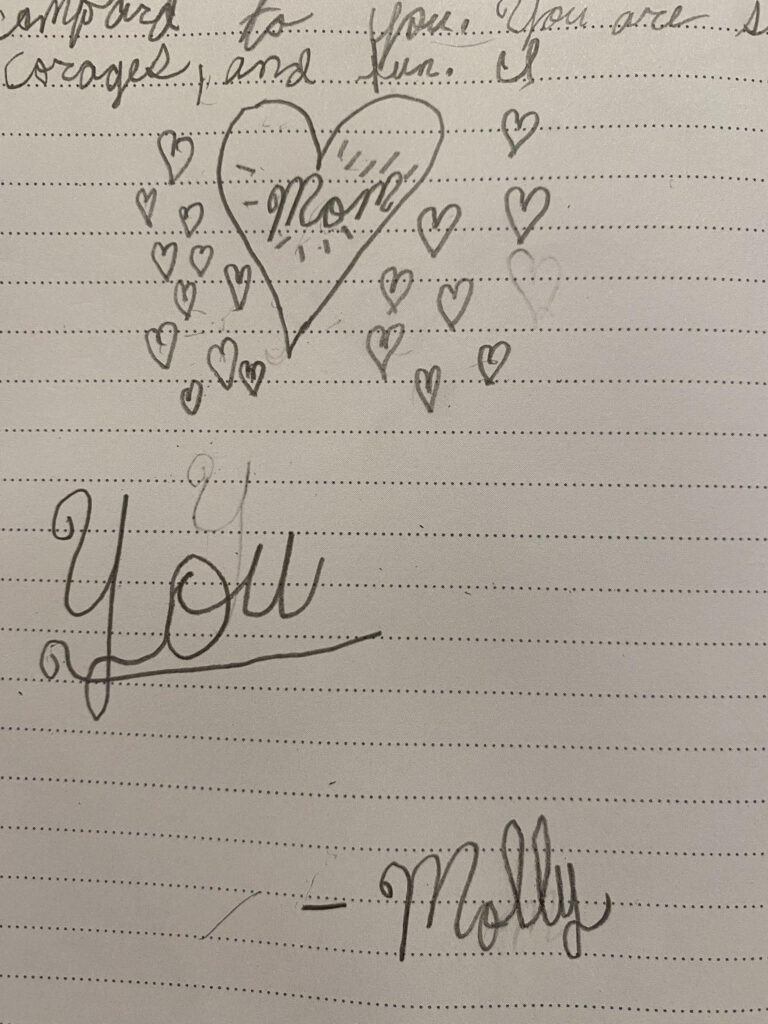 compard to you. You are s
corages, and fun. I
Mom
Y
You
- Molly